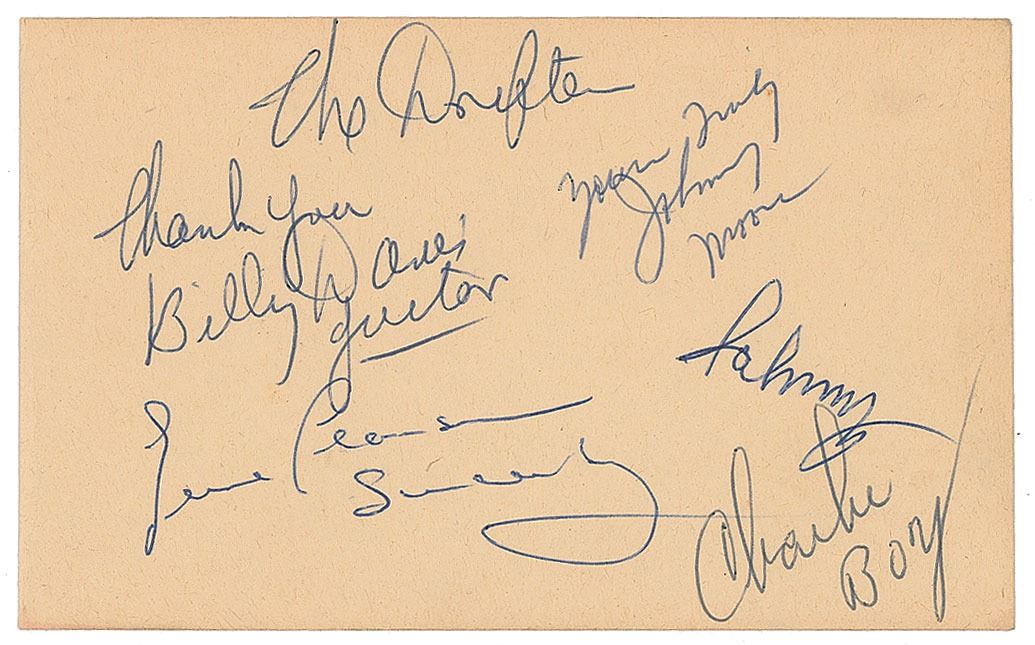 The Drifters
Thank you
Billy Davis
guitar
Yours Truly
Johnny
Moore
Gene Pearson
Sincerely
Johnny
Charlie
Boy